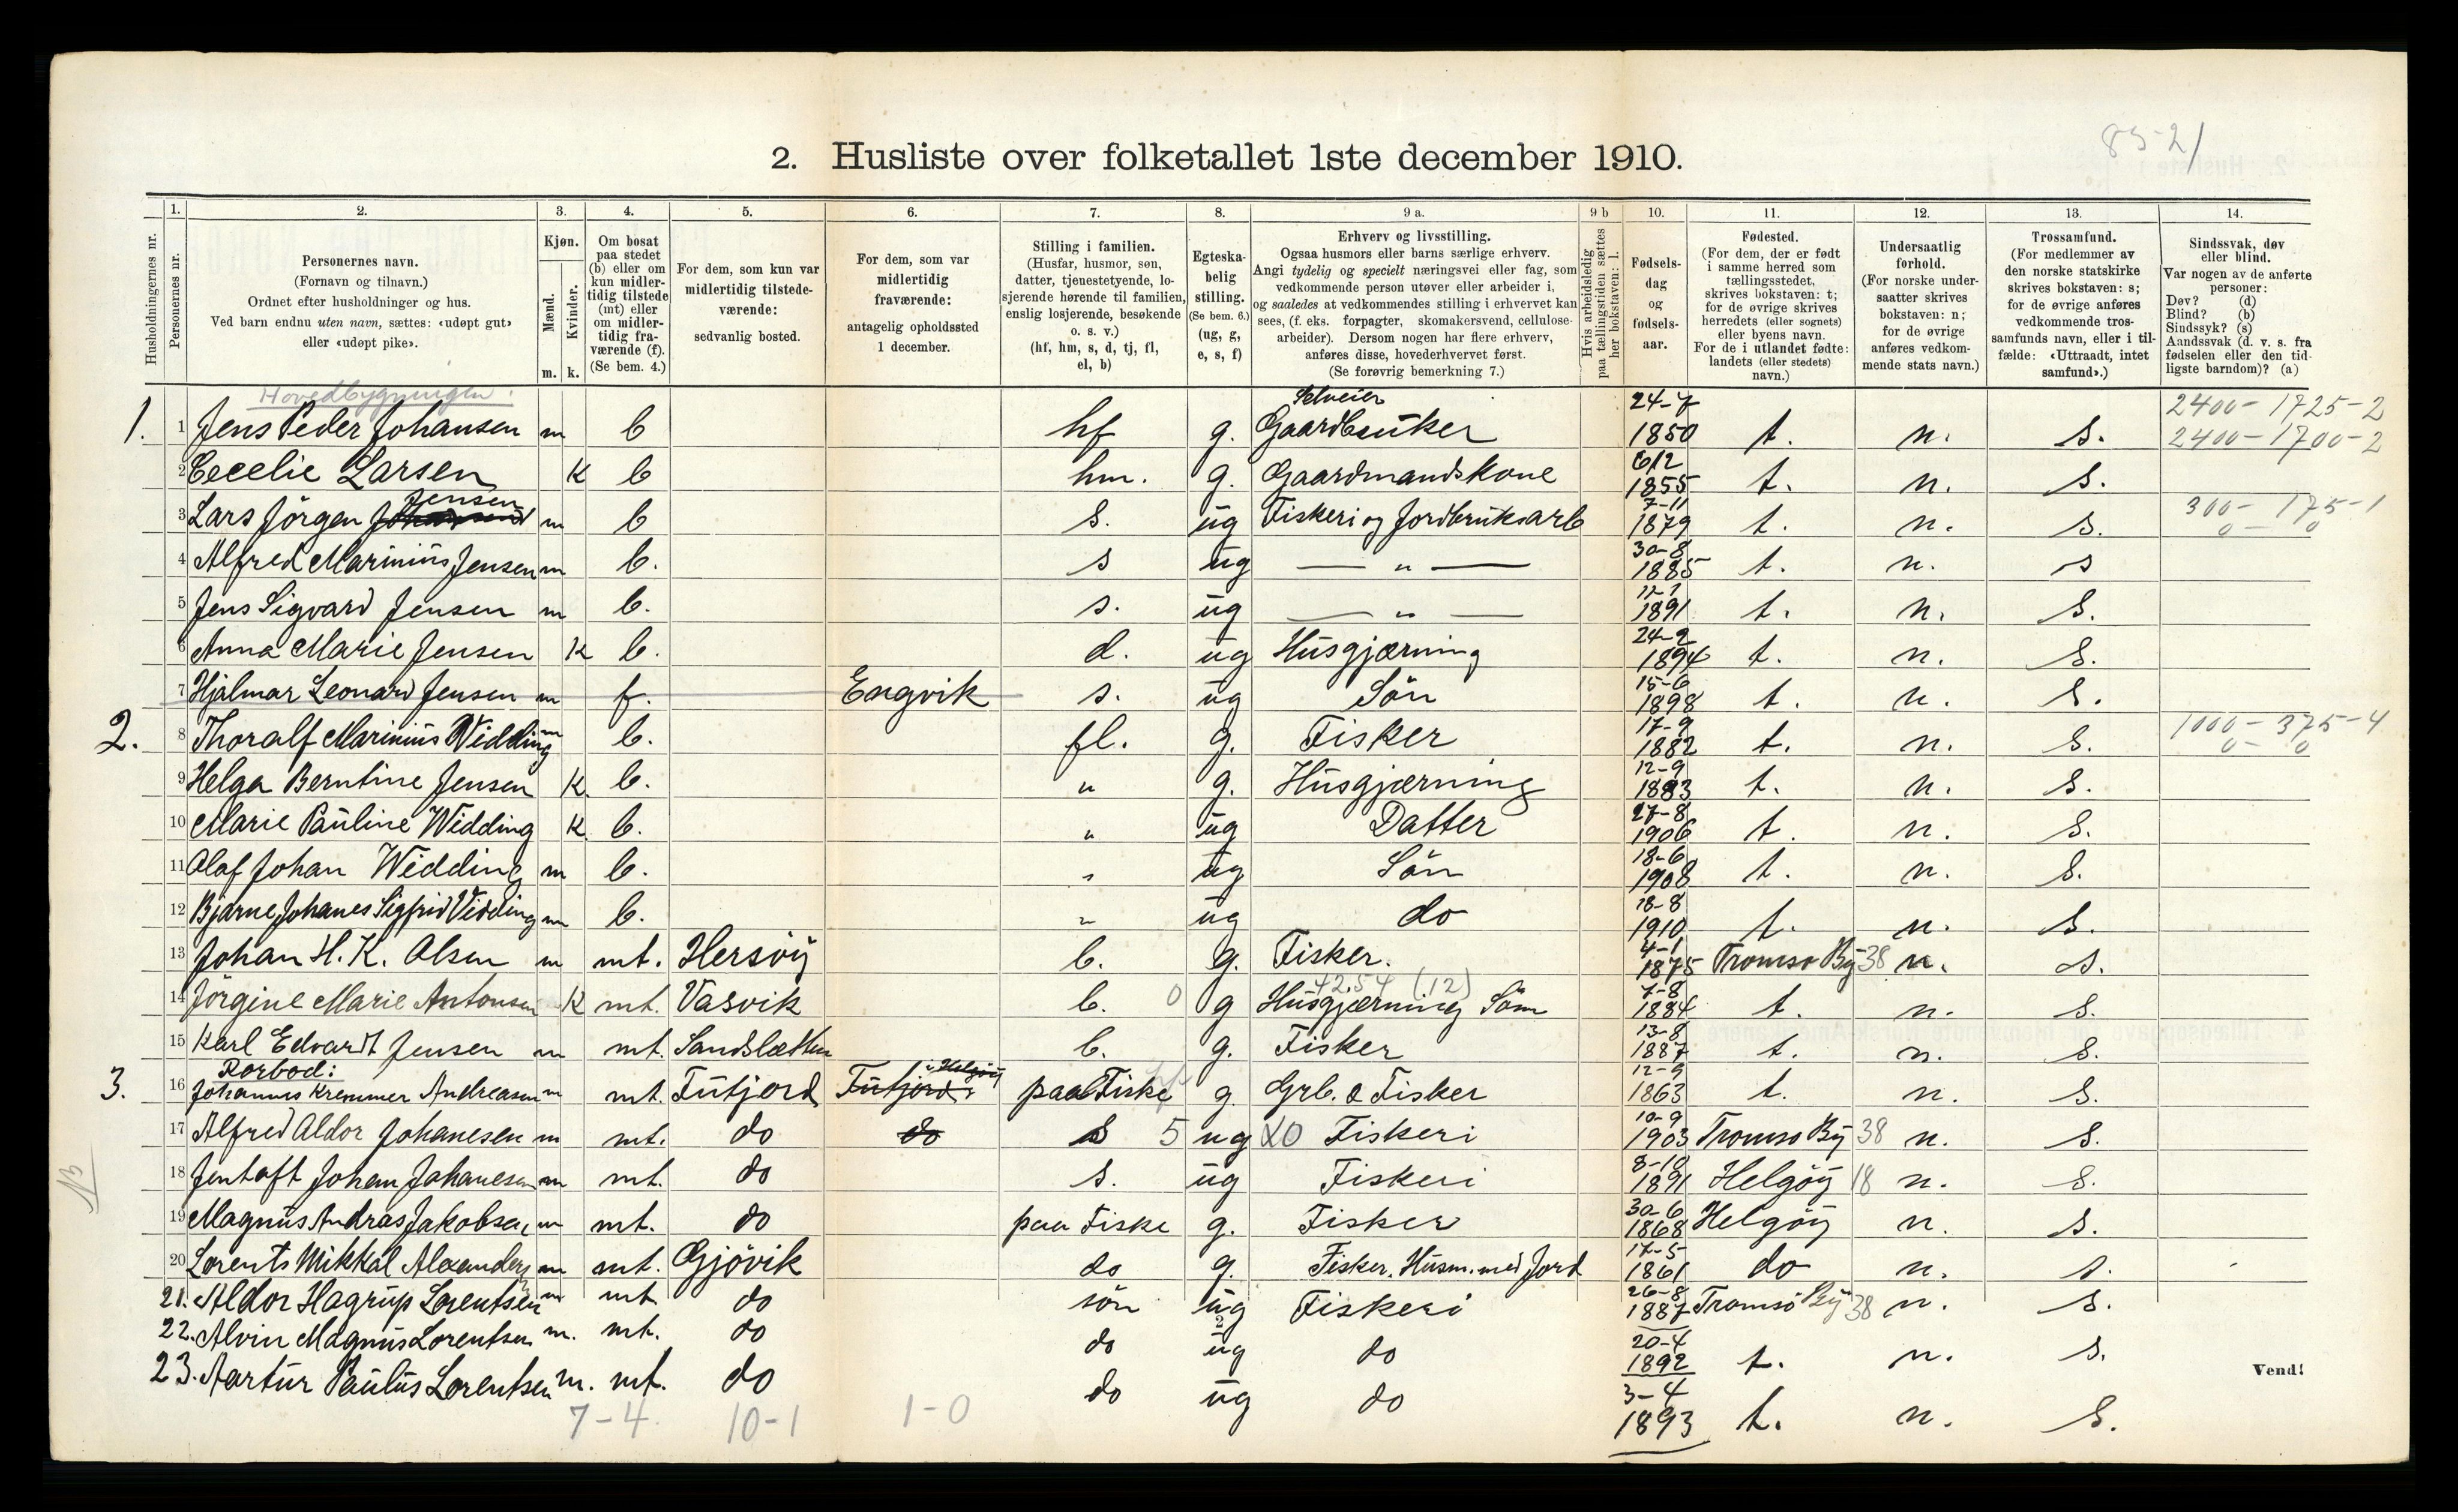 85-21
2. Husliste over folketallet 1ste december 1910.
Husholdningernes nr.
1.
Personernes nr.
2.
Personernes navn.
(Fornavn og tilnavn.)
Ordnet efter husholdninger og hus.
Ved barn endnu uten navn, sættes: «udøpt gut»
eller «udøpt pike».
3.
Kjøn.
Mænd.
Kvinder.
m. k.
4.
Om bosat
paa stedet
(b) eller om
kun midler-
tidig tilstede
(mt) eller
om midler-
tidig fra-
værende (f).
(Se bem. 4.)
5.
For dem, som kun var
midlertidig tilstede-
værende:
sedvanlig bosted.
6.
For dem, som var
midlertidig
fraværende:
antagelig opholdssted
1 december.
7.
Stilling i familien.
(Husfar, husmor, søn,
datter, tjenestetyende, lo-
sjerende hørende til familien,
enslig losjerende, besøkende
o. s. v.)
(hf, hm, s, d, tj, fl,
el, b)
8.
Egteska-
belig
stilling.
(Se bem. 6.)
(ug, g,
e, s, f)
9 a.
Erhverv og livsstilling.
Ogsaa husmors eller barns særlige erhverv.
Angi tydelig og specielt næringsvei eller fag, som
vedkommende person utøver eller arbeider i,
og saaledes at vedkommendes stilling i erhvervet kan
sees, (f. eks. forpagter, skomakersvend, cellulose-
arbeider). Dersom nogen har flere erhverv,
anføres disse, hovederhvervet først.
(Se forøvrig bemerkning 7.)
9 b
Hvis arbeidsledig
paa tællingstiden sættes
her bokstaven: l.
10.
Fødsels-
dag
og
fødsels-
aar.
11.
Fødested.
(For dem, der er født
i samme herred som
tællingsstedet,
skrives bokstaven: t;
for de øvrige skrives
herredets (eller sognets)
eller byens navn.
For de i utlandet fødte:
landets (eller stedets)
navn.)
12.
Undersaatlig
forhold.
(For norske under-
saatter skrives
bokstaven: n;
for de øvrige
anføres vedkom-
mende stats navn.)
13.
Trossamfund.
(For medlemmer av
den norske statskirke
skrives bokstaven: s;
for de øvrige anføres
vedkommende tros-
samfunds navn, eller i til-
fælde: «Uttraadt, intet
samfund».)
14.
Sindssvak, døv
eller blind.
Var nogen av de anførte
personer:
Døv? (d)
Blind? (b)
Sindssyk? (s)
Aandssvak (d. v. s. fra
fødselen eller den tid-
ligste barndom)? (a)
Hovedbygningen:
1. 1 Jens Peder Johansen m b hf g. Selveier Gaardbruker 24-7 1850 t. n. s. 2400-1725-2 2400-1700-2
2 Cecelie Larsen K b hm. g. Gaardmandskone 6/12 1855 t. n. s.
3 Lars Jörgen Jensen m b s. ug Fiskeri og Jordbruksarb 7-11 1879 t. n. s. 300-175-1 0-0
4 Alfred Marinius Jensen m b. s ug — " — 30-8 1885 t. n. s
5 Jens Sigvard Jensen m b. s. ug — " — 1891 t. n. s.
6 Anna Marie Jensen K b. d. ug Husgjærning 24-2 1894 t. n. s.
7 Hjalmar Leonard Jensen m f. Engvik s. ug Sön 15-6 1898 t. n. s.
2. 8 Thoralf Marinius Widding m b. fl. g. Fisker 17-9 1882 t. n. s. 1000-375-4 0-0
9 Helga Berntine Jensen K. b. " g. Husgjærning 12-9 1883 t. n. s.
10 Marie Pauline Widding K. b. " ug Datter 27-8 1906 t. n. s.
11 Olaf Johan Widding m b. " ug Sön 18-6 1908 t. n. s.
12 Bjarne Johanes Sigfrid Vidding m b. " ug do 18-8 1910 t. n. s.
13 Johan H. K. Olsen m mt. Hersöy b. g. Fisker. 4-1 1875 Tromsø By 38 n. s.
14 Jörgine Marie Antonsen K mt. Vasvik b. 0 g Husgjærning Söm 42.54 (12) 7-8 1884 t. n. s.
15 Karl Edvardt Jensen m mt. Sandsletten b. g. Fisker 13-8 1887 t. n. s.
Rorbod:
3. 16 Johannes Kremmer Andreasen m mt. Futjord Futjord i Helgöy paa Fiske g. Grb. & Fisker 12-9 1863 t. n. s.
17 Alfred Aldor Johanesen m mt. do do S 5 ug Fiskeri 10-9 1903 Tromsø By 38 n. s.
18 Jentoft Johan Johanesen m mt. do s. ug Fiskeri 8-10 1891 Helgöy 18 n. s.
19 Magnus Andras Jakobsen m mt. do paa Fiske g. Fisker 30-6 1868 Helgöy n. s.
20 Lorents Mikkal Alexanders m mt. Gjövik do g. Fisker. Husm. med Jord 17-5 1861 do n. s.
21. Aldor Hagrup Lorentsen m mt. do sön ug Fiskeri 26-8 1887 Tromsö By 38 n. s.
22. Alvin Magnus Lorentsen m. mt. do do ug do 20-4 1892 t. n. s.
23. Aartur Paulus Lorentsen m. mt. do do ug do 3-4 1893 t. n. s.
Vend!
7-4. 10-1 1-0
NB